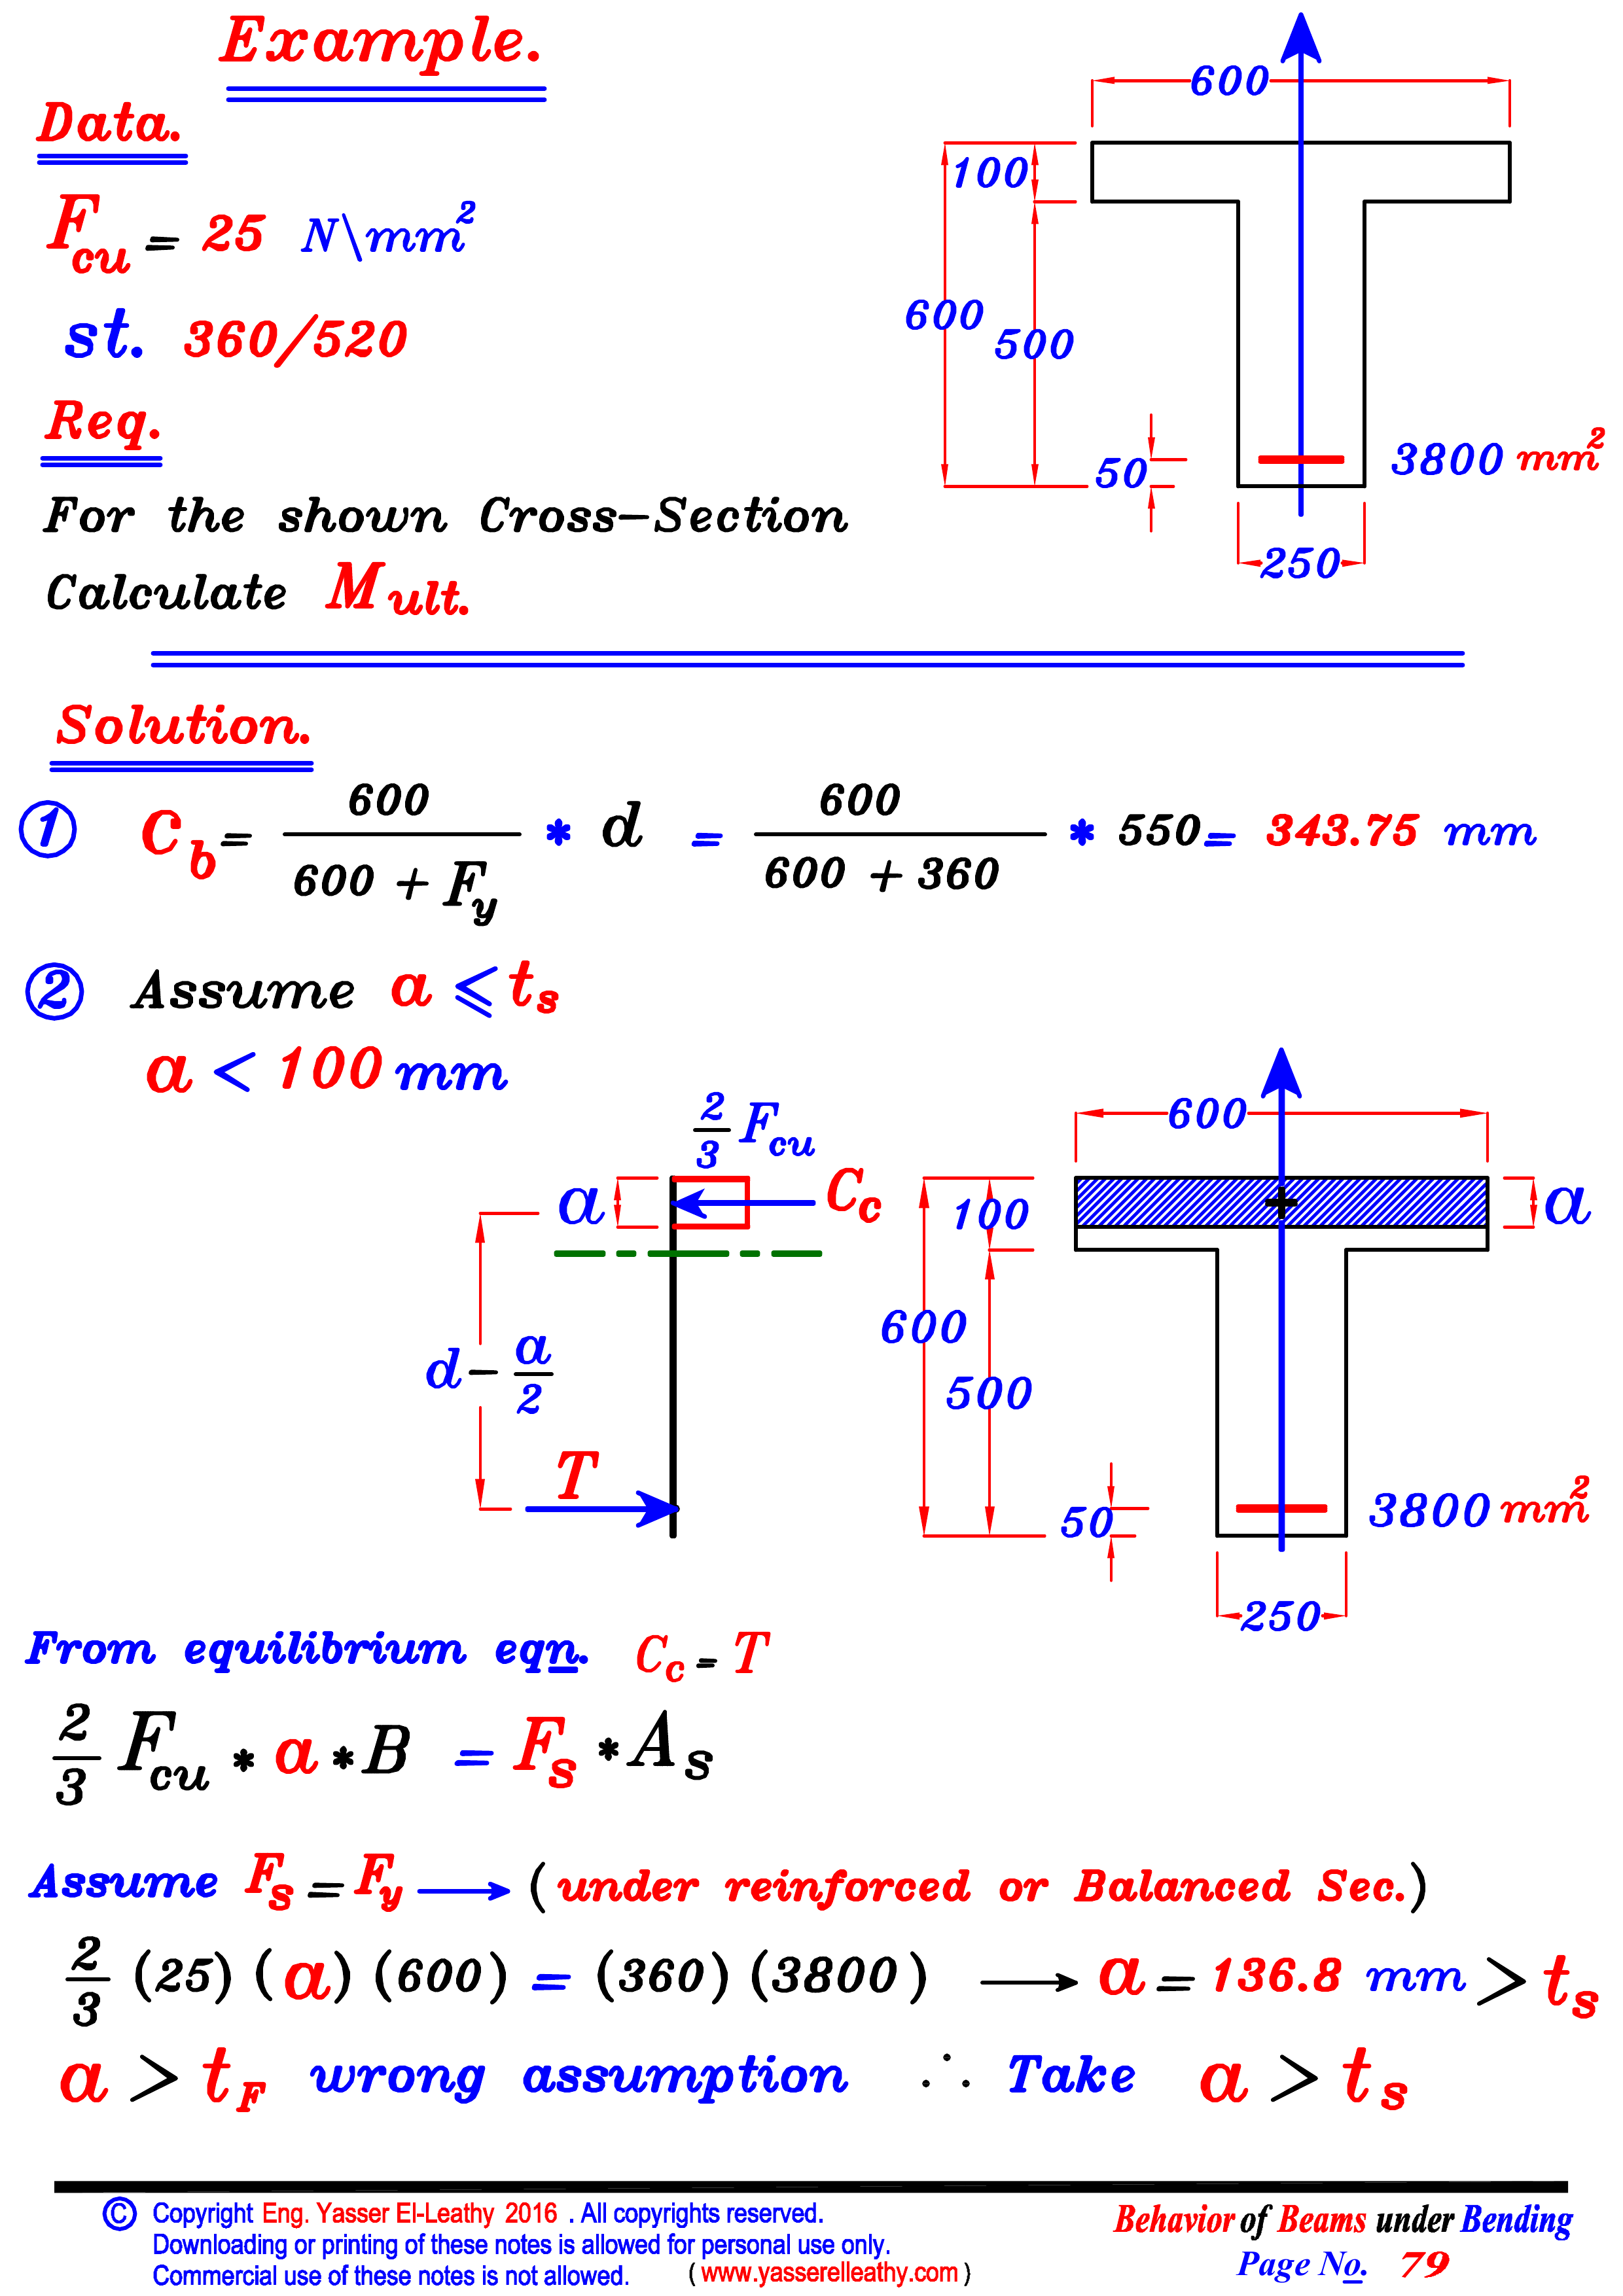 Example.
Data.
Fcu = 25 N\mm²
st. 360/520
Req.
For the shown Cross-Section
Calculate Mult.
600
100
600
500
50
3800 mm²
250
Solution.
① Cb = 600 / (600 + Fy) * d = 600 / (600 + 360) * 550 = 343.75 mm
② Assume a ⩽ ts
a < 100 mm
2/3 Fcu
a
Cc
d - a/2
T
600
100
a
600
500
50
3800 mm²
250
From equilibrium eqn. Cc = T
2/3 Fcu * a * B = Fs * As
Assume Fs = Fy → (under reinforced or Balanced Sec.)
2/3 (25) (a) (600) = (360) (3800) → a = 136.8 mm > ts
a > tF wrong assumption ∴ Take a > ts
© Copyright Eng. Yasser El-Leathy 2016 . All copyrights reserved.
Downloading or printing of these notes is allowed for personal use only.
Commercial use of these notes is not allowed. ( www.yasserelleathy.com )
Behavior of Beams under Bending
Page No. 79